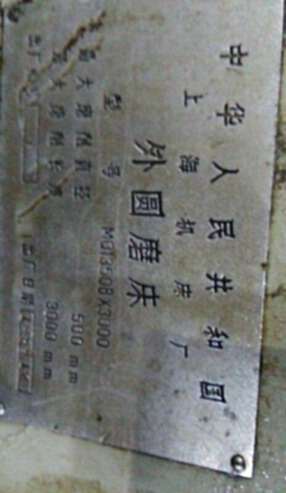 中华人民共和国
上海机床厂
外圆磨床
型号
最大磨削直径 500 mm
最大磨削长度 3000 mm
出厂 出厂日期